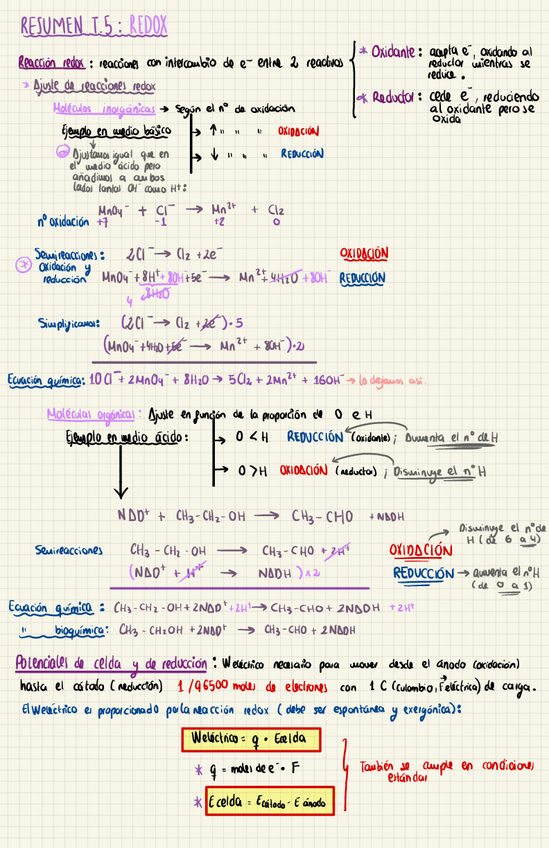 RESUMEN T.5: REDOX
Reacción redox: reacciones con intercambio de e⁻ entre 2 reactivos
* Oxidante: acepta e⁻, oxidando al
reductor mientras se
reduce.
* Reductor: cede e⁻, reduciendo
al oxidante pero se
oxida
> Ajuste de reacciones redox
Moléculas inorgánicas → Según el nº de oxidación
Ejemplo en medio básico
→ ↑ " " " OXIDACIÓN
→ ↓ " " " REDUCCIÓN
Ajustamos igual que en
el medio ácido pero
añadimos a ambos
lados tantos OH⁻ como H⁺:
MnO₄⁻ + Cl⁻ → Mn²⁺ + Cl₂
nº oxidación +7 -1 +2 0
* Semirreacciones: 2Cl⁻ → Cl₂ + 2e⁻ OXIDACIÓN
Oxidación y
reducción MnO₄⁻ + 8H⁺ + 8OH + 5e⁻ → Mn²⁺ + 4H₂O + 8OH⁻ REDUCCIÓN
4 8H₂O
Simplificamos: (2Cl⁻ → Cl₂ + 2e⁻) · 5
(MnO₄⁻ + 4H₂O + 5e⁻ → Mn²⁺ + 8OH⁻) · 2
Ecuación química: 10Cl⁻ + 2MnO₄⁻ + 8H₂O → 5Cl₂ + 2Mn²⁺ + 16OH⁻ → lo dejamos así.
Moléculas orgánicas: Ajuste en función de la proporción de O e H
Ejemplo en medio ácido:
→ O < H REDUCCIÓN (oxidante); Aumenta el nº de H
→ O > H OXIDACIÓN (reductor); Disminuye el nº H
NAD⁺ + CH₃-CH₂-OH → CH₃-CHO + NADH
Semirreacciones CH₃-CH₂-OH → CH₃-CHO + 2H⁺ OXIDACIÓN
Disminuye el nº de
H (de 6 a 4)
(NAD⁺ + H⁺ → NADH) x2 REDUCCIÓN → aumenta el nº H
(de 0 a 1)
Ecuación química: CH₃-CH₂-OH + 2NAD⁺ + 2H⁺ → CH₃-CHO + 2NADH + 2H⁺
" bioquímica: CH₃-CH₂OH + 2NAD⁺ → CH₃-CHO + 2NADH
Potenciales de celda y de reducción: Weléctrico necesario para mover desde el ánodo (oxidación)
hasta el cátodo (reducción) 1/96500 moles de electrones con 1 C (culombio, F eléctrica) de carga.
El Weléctrico es proporcionado por la reacción redox (debe ser espontánea y exergónica):
Weléctrico = q · Ecelda
* q = moles de e⁻ · F
* Ecelda = Ecátodo - E ánodo
También se cumple en condiciones
estándar